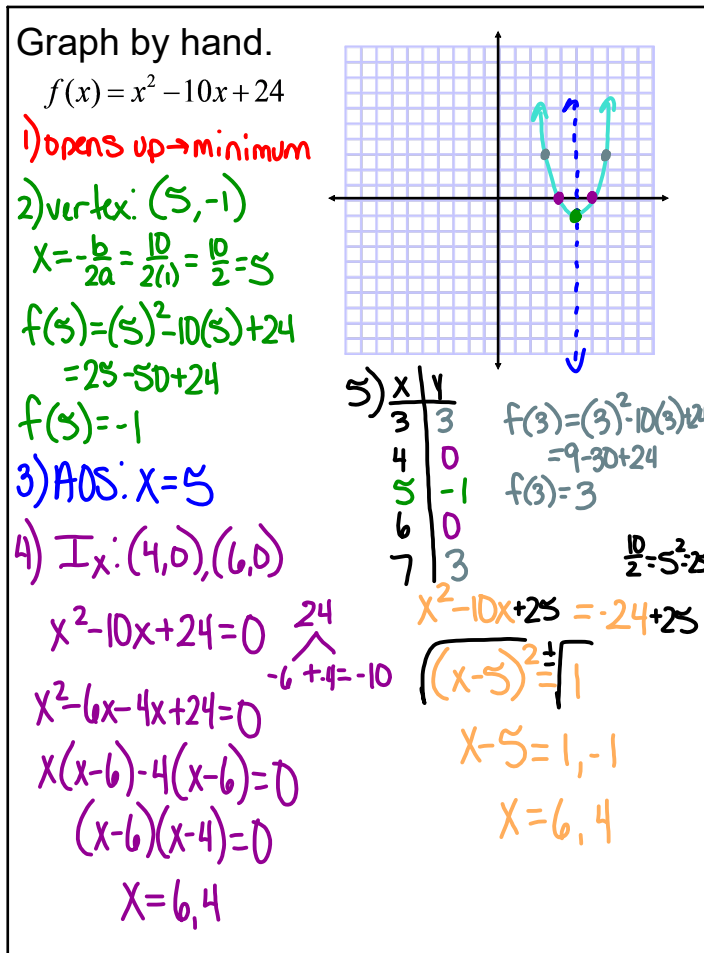 Graph by hand.
f(x) = x² − 10x + 24
1) opens up → minimum
2) vertex: (5, -1)
x = -b/2a = 10/2(1) = 10/2 = 5
f(5) = (5)² - 10(5) + 24
= 25 - 50 + 24
f(5) = -1
3) AOS: x = 5
4) Iₓ: (4,0), (6,0)
x² - 10x + 24 = 0
24
-6 + -4 = -10
x² - 6x - 4x + 24 = 0
x(x-6) - 4(x-6) = 0
(x-6)(x-4) = 0
x = 6, 4
5) x y
3 3
4 0
5 -1
6 0
7 3
f(3) = (3)² - 10(3) + 24
= 9 - 30 + 24
f(3) = 3
10/2 = 5² = 25
x² - 10x + 25 = -24 + 25
√(x-5)² = ±√1
x - 5 = 1, -1
x = 6, 4